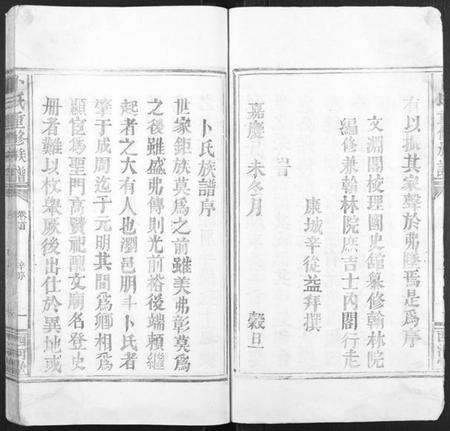 有以振其家聲於弗墜焉是為序
文淵閣校理國史館纂修翰林院
編修兼翰林院庶吉士內閣行走
康城辛從益拜撰
嘉慶 未冬月
穀旦
卜氏族譜序
世家鉅族莫為之前雖美弗彰莫為
之後雖盛弗傳則光前裕後端賴繼
起者之大有人也瀏邑明斗卜氏者
肇于成周迄于元明其間為卿相為
顯宦為聖門高賢祀聖文廟名登史
冊者難以枚舉厥後出仕於異地或
卜氏重修族譜
卷首
西河堂